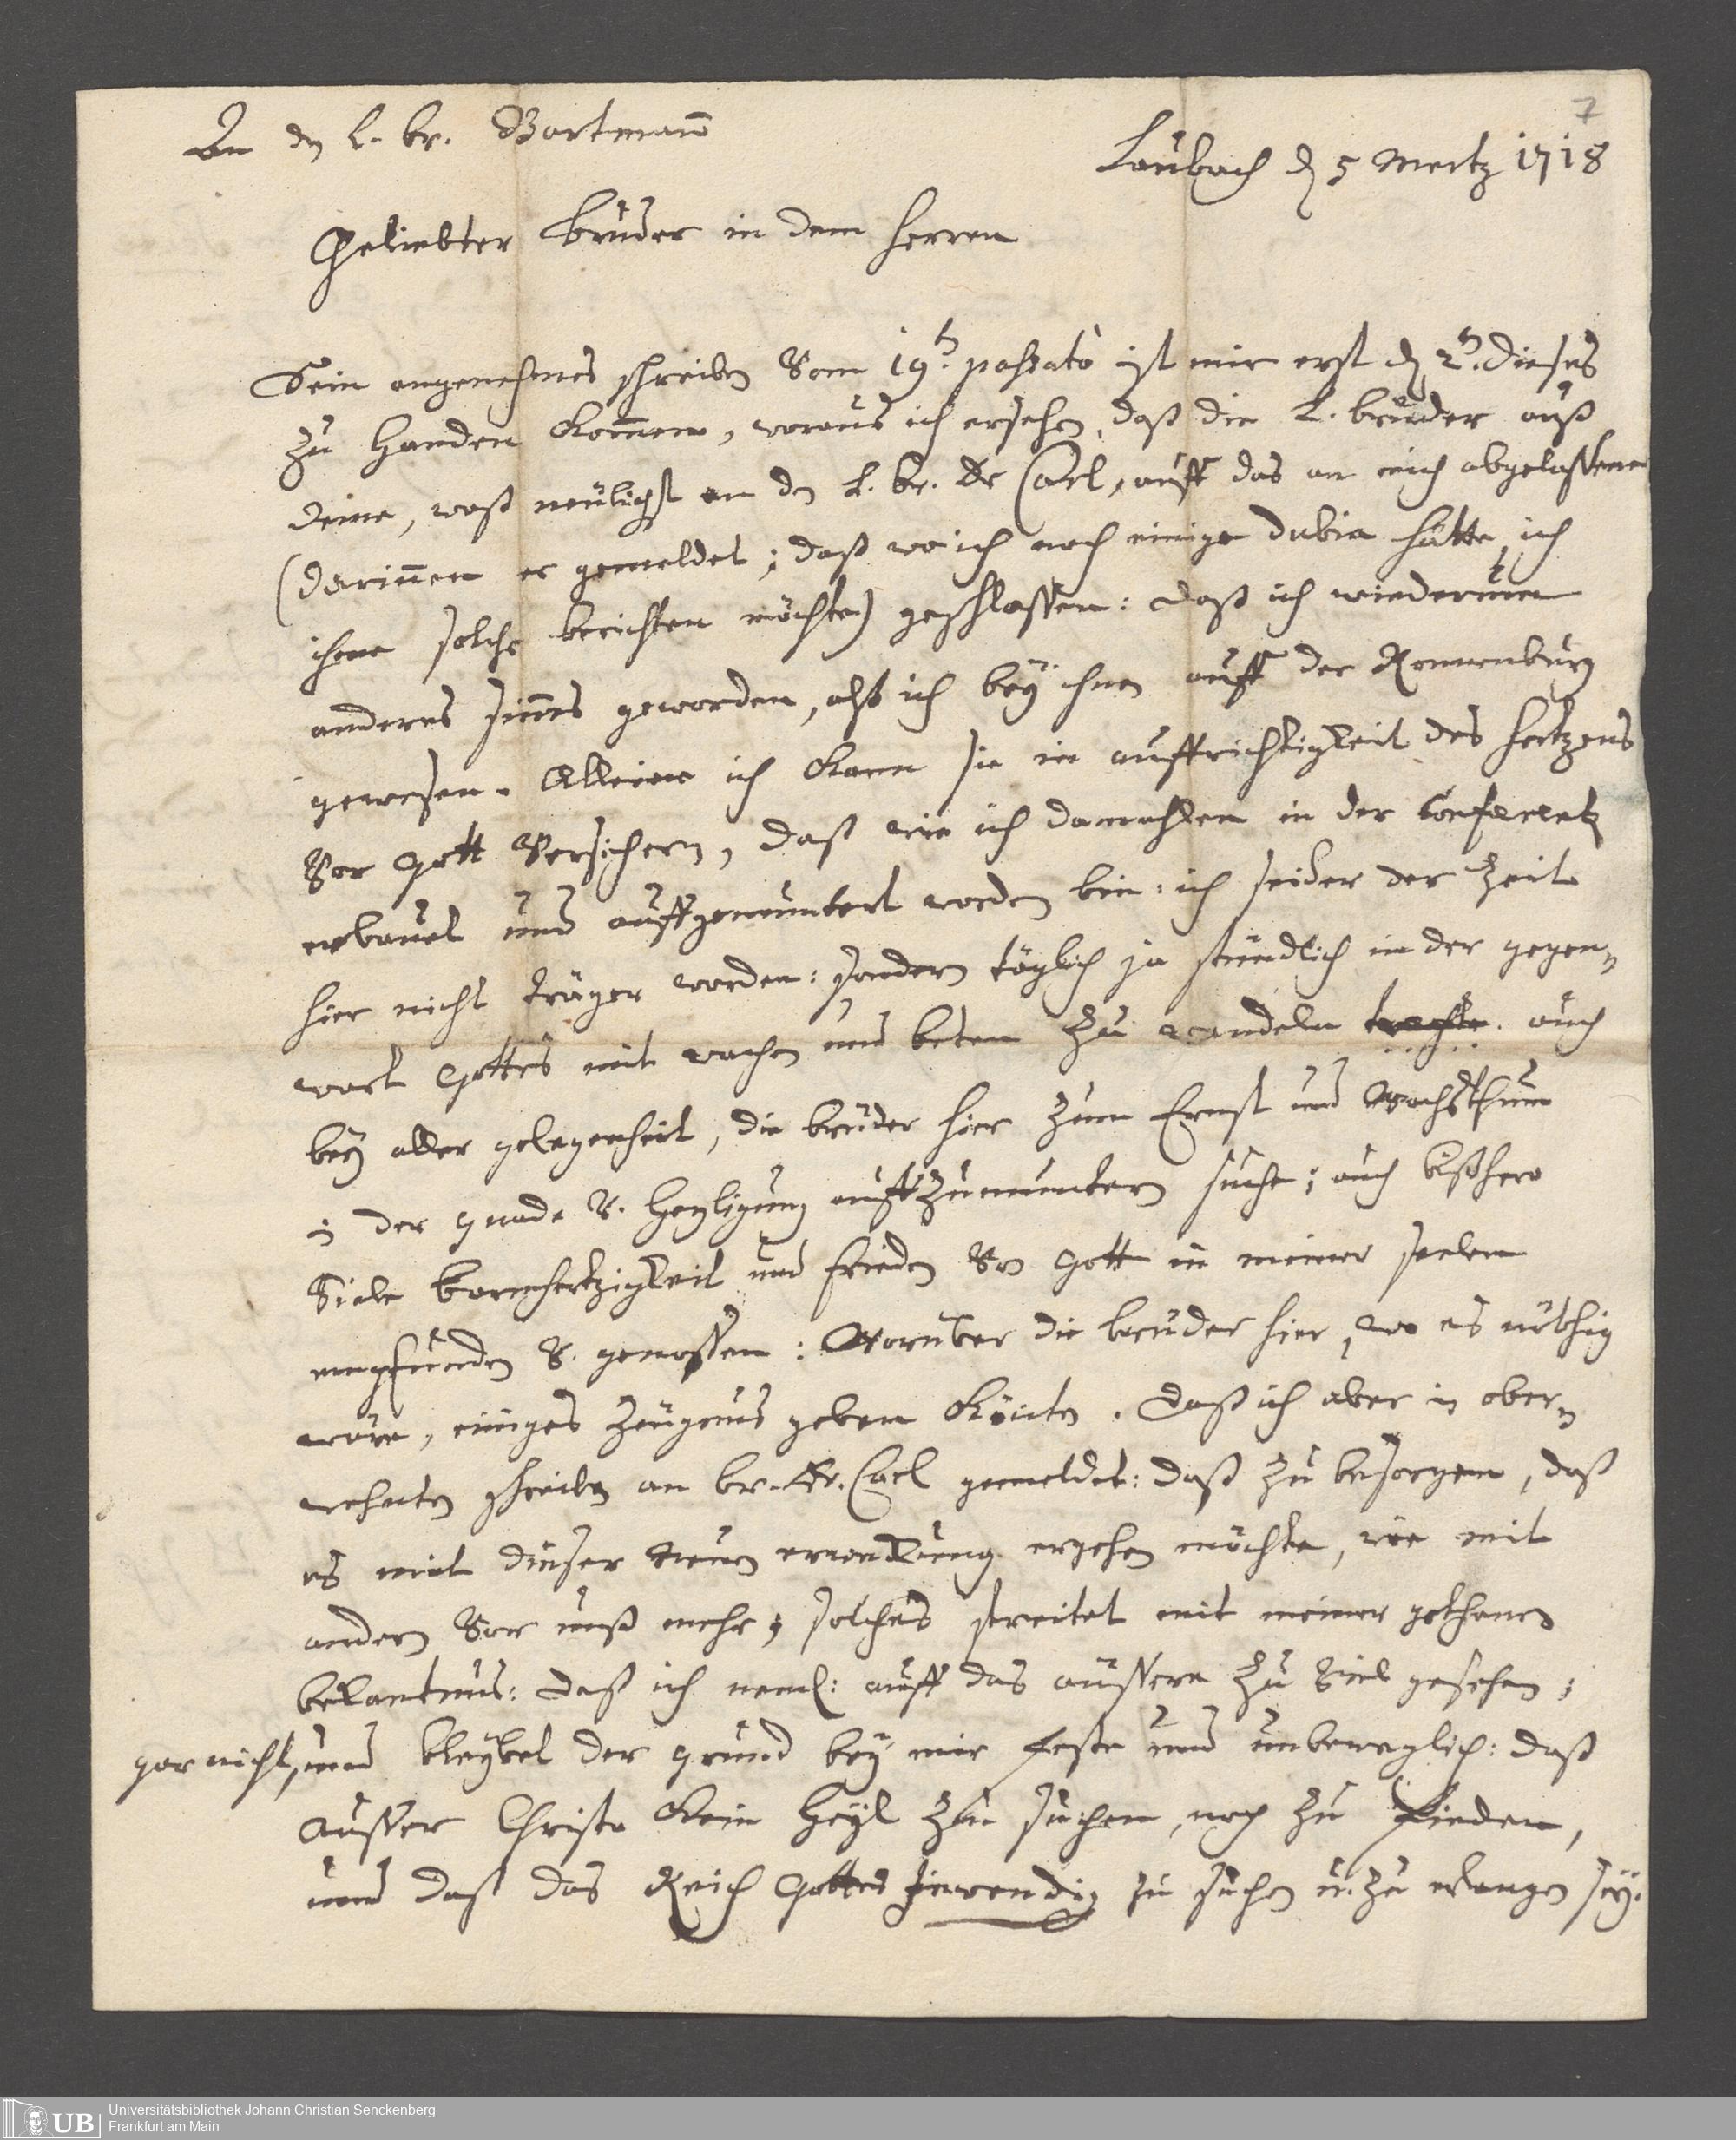 7
An dn l. br. Bartmañ
Laubach dn 5 Mertz 1718
Geliebter bruder in dem Herren
Sein angenehmes schreiben Vom 19tn passato ist mir erst dn 2tn dieses
zu Handen kom̃en, woraus ich ersehen, daß die l. brüder auß
deme, waß neulichst an den l. br. Dr Carl, auff das an mich abgelassene
(darinnen er gemeldet; daß wo ich noch einige dubia hätte, ich
ihme solche berichten möchte) geschlossen: daß ich wiederumen
anderes sinnes geworden, alß ich bey ihnen auff der Ronnenburg
gewesen. Alleine ich kann sie in auffrichtigkeit des hertzens
Vor Gott Versichern, daß wie ich damahlen in der Conferentz
erbauet und auffgemuntert worden bin: ich seider der Zeit
hier nicht träger worden: sondern täglich ja stündlich in der gegen-
wart Gottes mit wachen und beten zu wandeln trachte. auch
bey aller gelegenheit, die brüder hier zum Ernst und Wachsthum
in der gnade V. Heyligung auffzumuntern suche; auch bißhero
Viele barmhertzigkeit und frieden Von Gott in meiner seelen
empfunden V. genossen: Worüber die brüder hier, wo es nöthig
wäre, einiges Zeugnus geben könten. Daß ich aber in ober-
wehnten schreiben an br. Dr. Carl gemeldet: daß zu besorgen, daß
es mit dieser neuen erweckung ergehen möchte, wie mit
andern Vor unß mehr; solches streitet mit meiner gethanen
bekantnus: daß ich neml: auff das äussere zu Viel gesehen;
gar nicht, und bleybet der grund bey mir feste und unbeweglich: daß
ausser Christo kein Heyl zu suchen, noch zu finden,
und daß das Reich Gottes inwendig zu suchen u. zu erlangen sey.
UB
Universitätsbibliothek Johann Christian Senckenberg
Frankfurt am Main